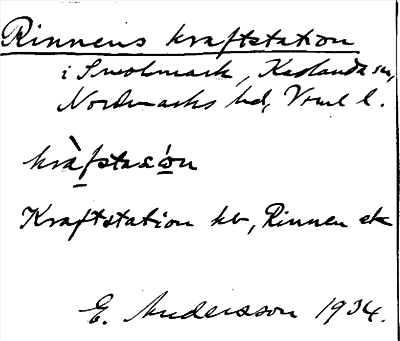 Rinnens kraftstation
i Svolmark, Karlanda sn,
Nordmarks hd, Vrml l.
kràfstasóon
Kraftstation kv, Rinnen ek
E. Andersson 1934.